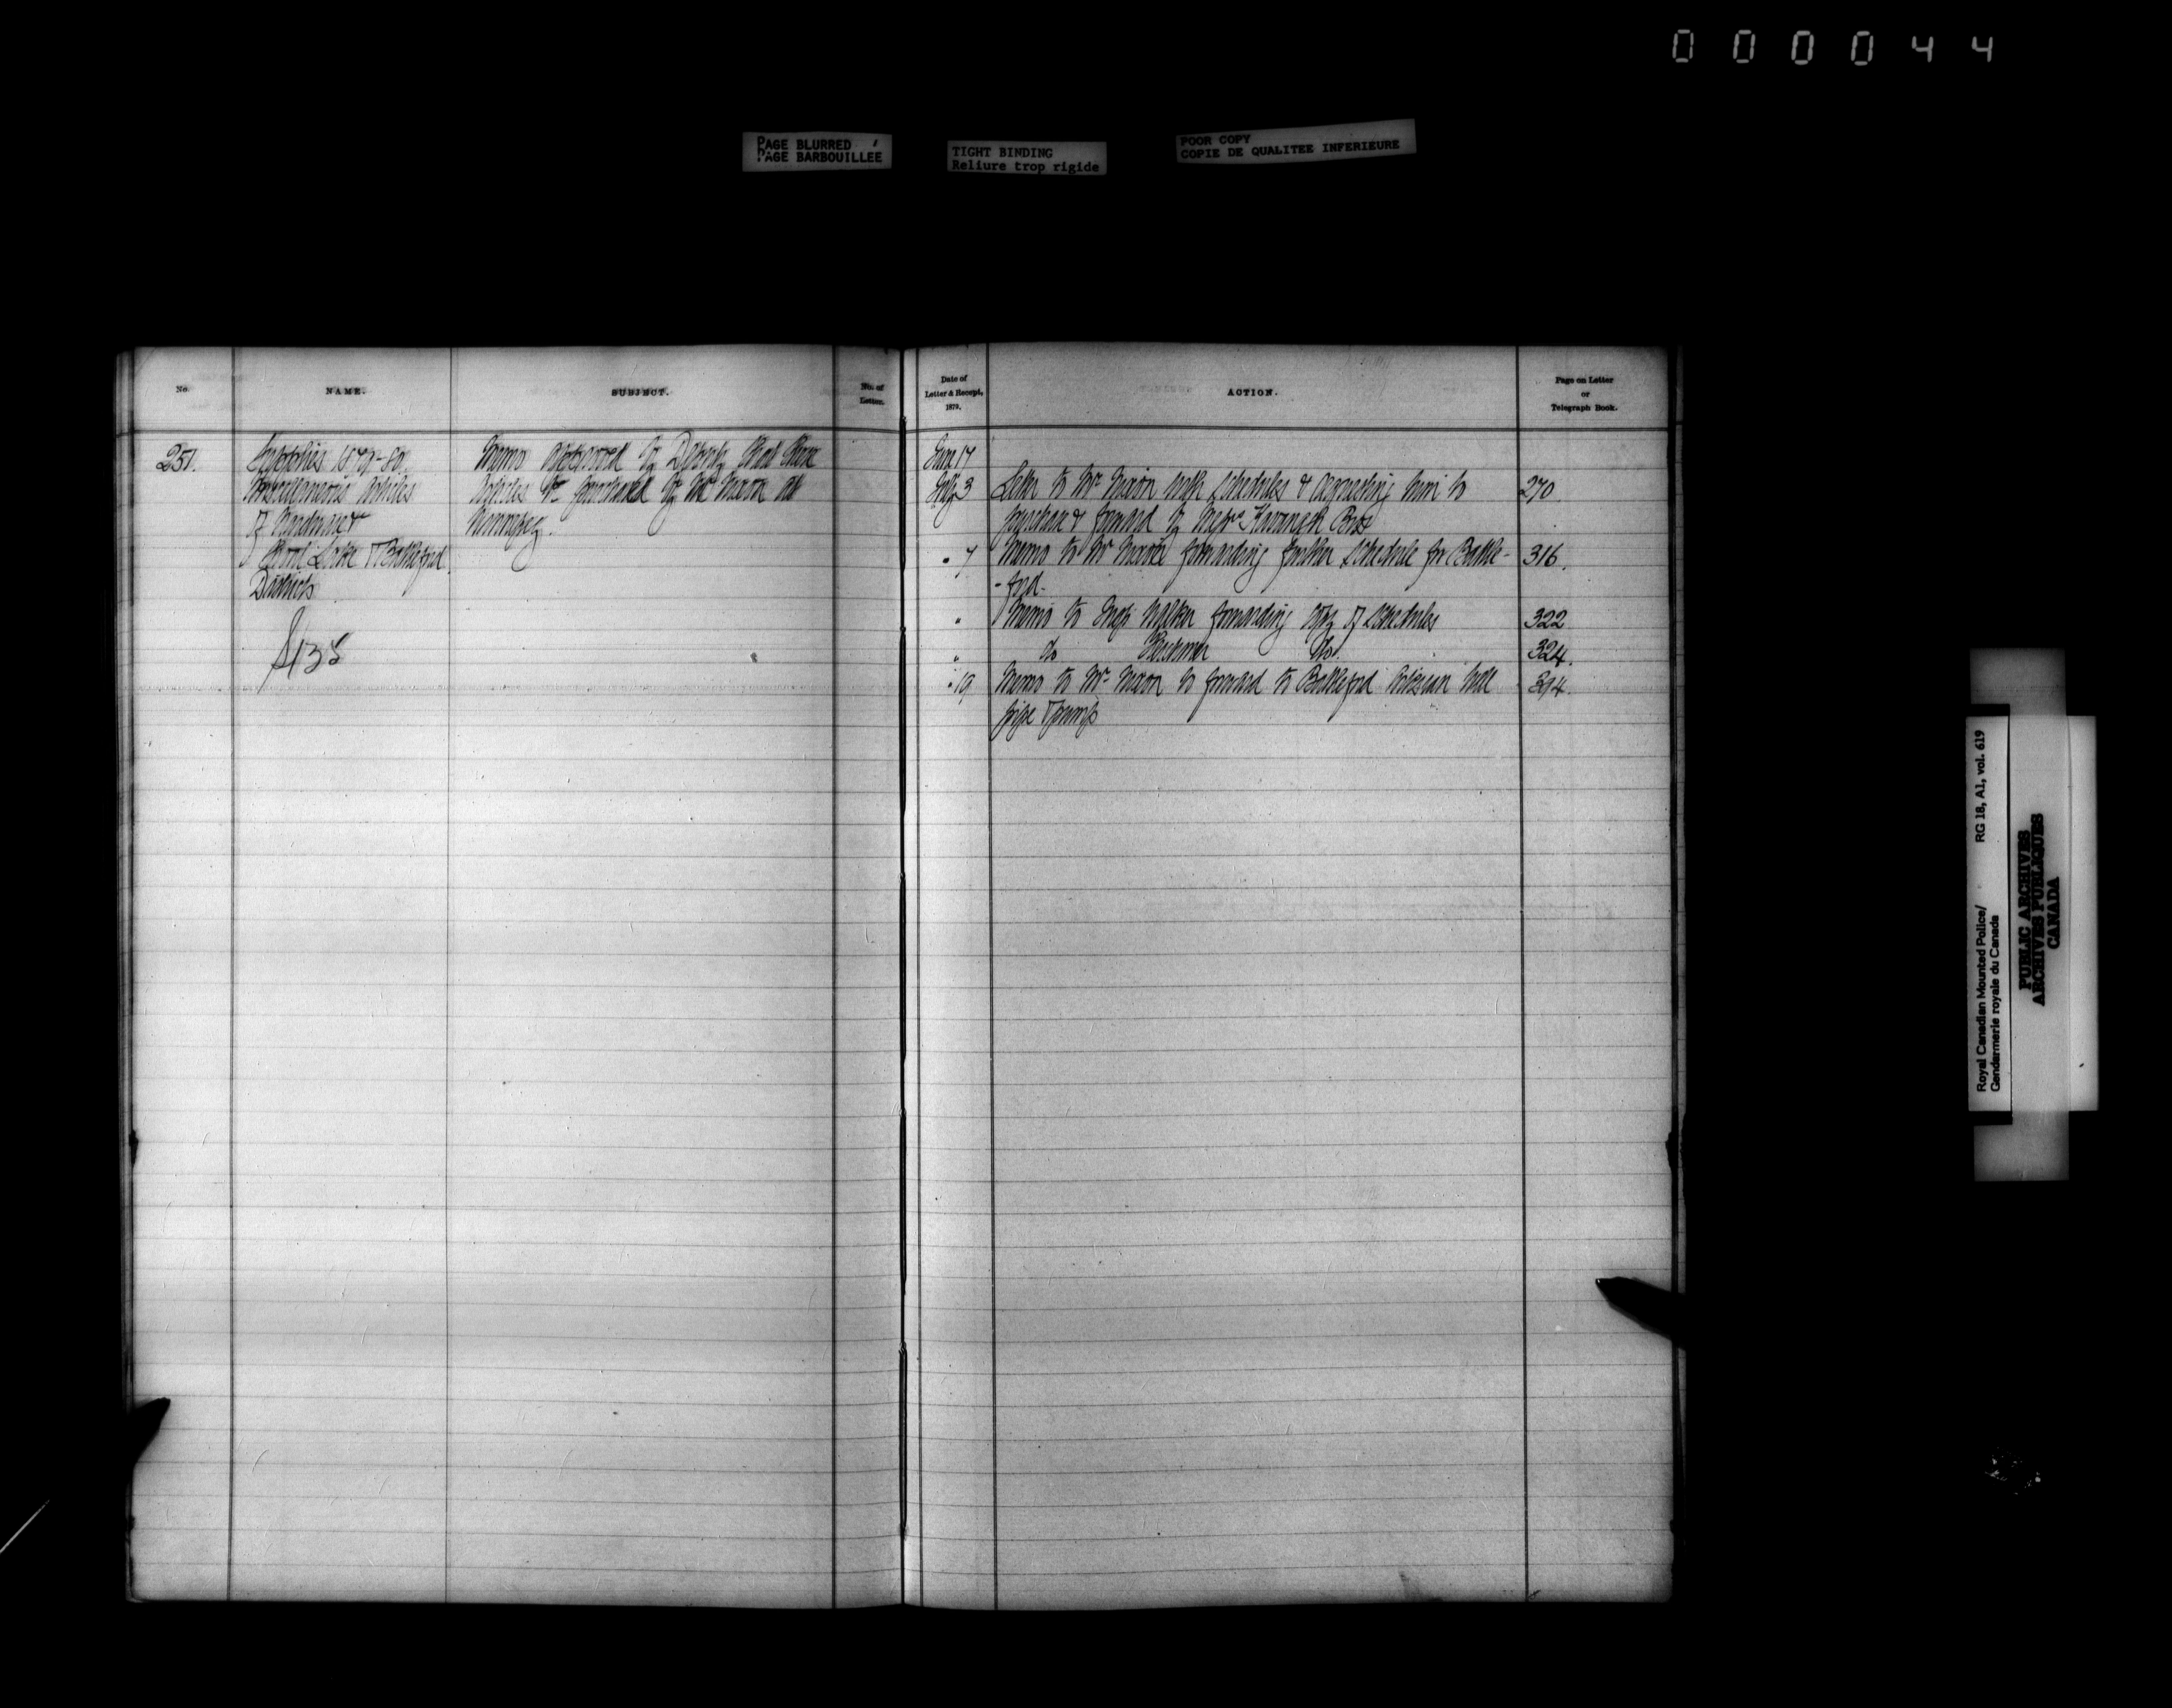 000044
PAGE BLURRED
PAGE BARBOUILLEE
TIGHT BINDING
Reliure trop rigide
POOR COPY
COPIE DE QUALITEE INFERIEURE
No.
NAME.
SUBJECT.
No. of
Letter.
Date of
Letter & Receipt,
1879.
ACTION.
Page on Letter
or
Telegraph Book.
251.
Supplies 1879-80.
Miscellaneous Articles
of Hardware &
Shoal Lake & Battleford
Districts
135
Memo approved by Deputy that these
Articles be purchased by Mr Nixon at
Winnipeg.
June 17
July 3 Letter to Mr Nixon with schedules & requesting him to 270
purchase & forward by Messrs Kavanagh Bros
" 7 Memo to Mr Nixon forwarding further schedule for Battle- 316.
-ford.
" Memo to Insp Walker forwarding copy of schedules 322
" do Herchmer do. 324.
" 19 Memo to Mr Nixon to forward to Battleford Artesian well 394.
pipe & pump
Royal Canadian Mounted Police/ RG 18, A1, vol. 619
Gendarmerie royale du Canada
PUBLIC ARCHIVES
ARCHIVES PUBLIQUES
CANADA